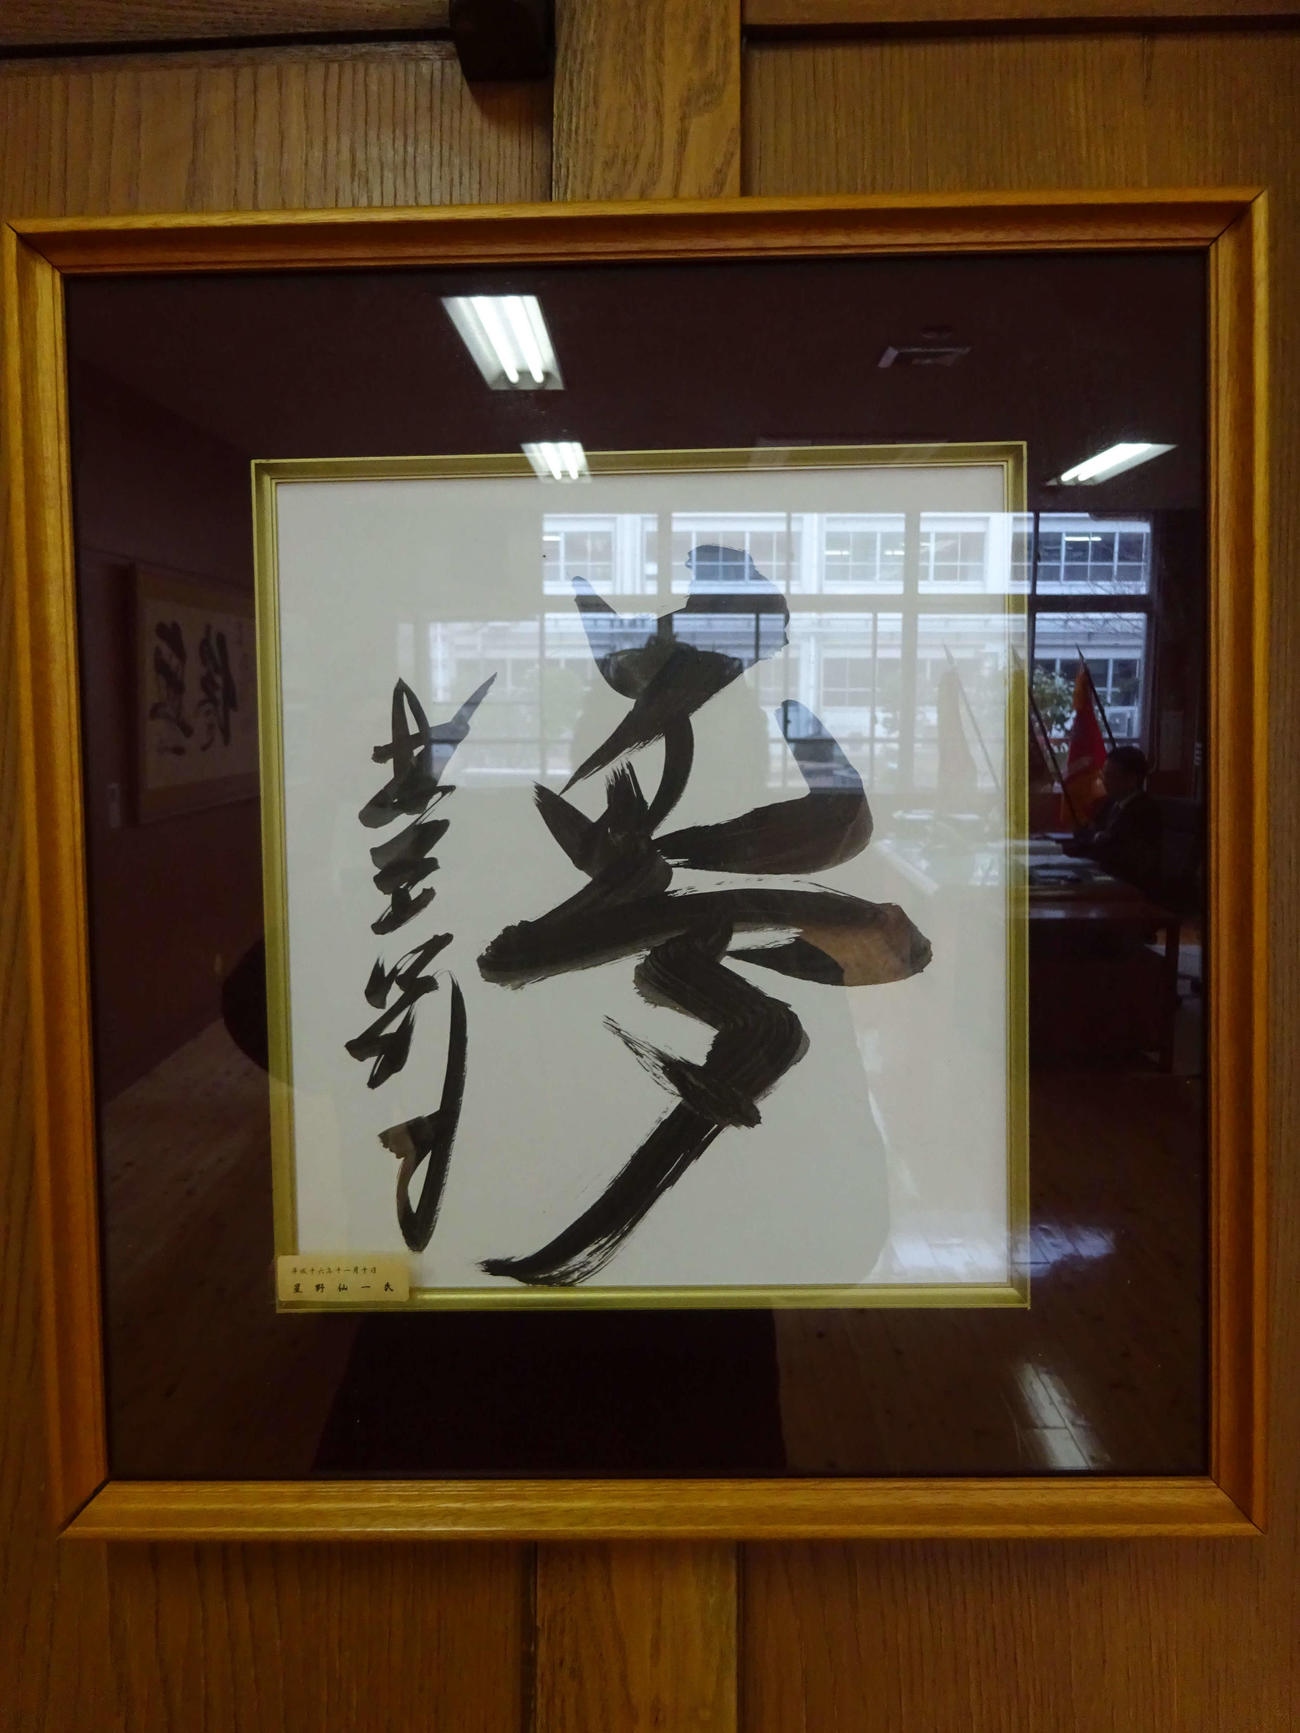 夢
星野仙一
平成十六年十一月十日
星野仙一氏